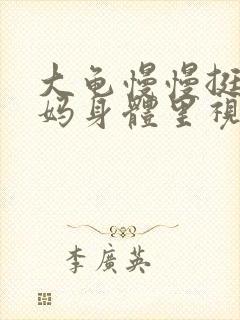 大龟慢慢挺
妈身體里視
李廣英